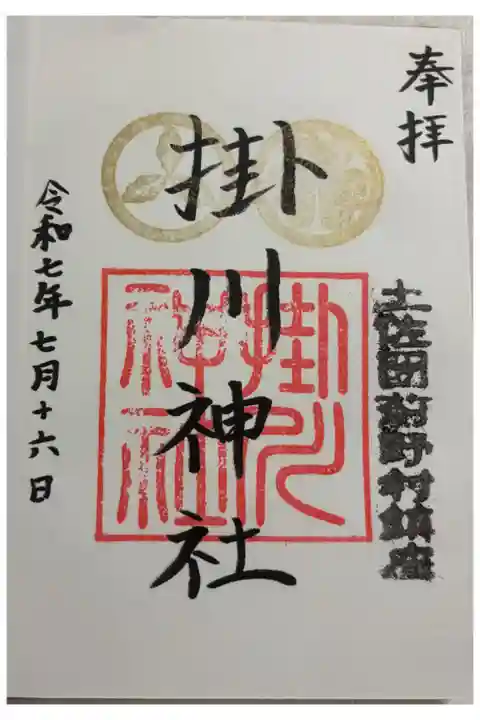 奉拝
土佐国薊野村鎮座
掛川神社
掛川神社
令和七年七月十六日